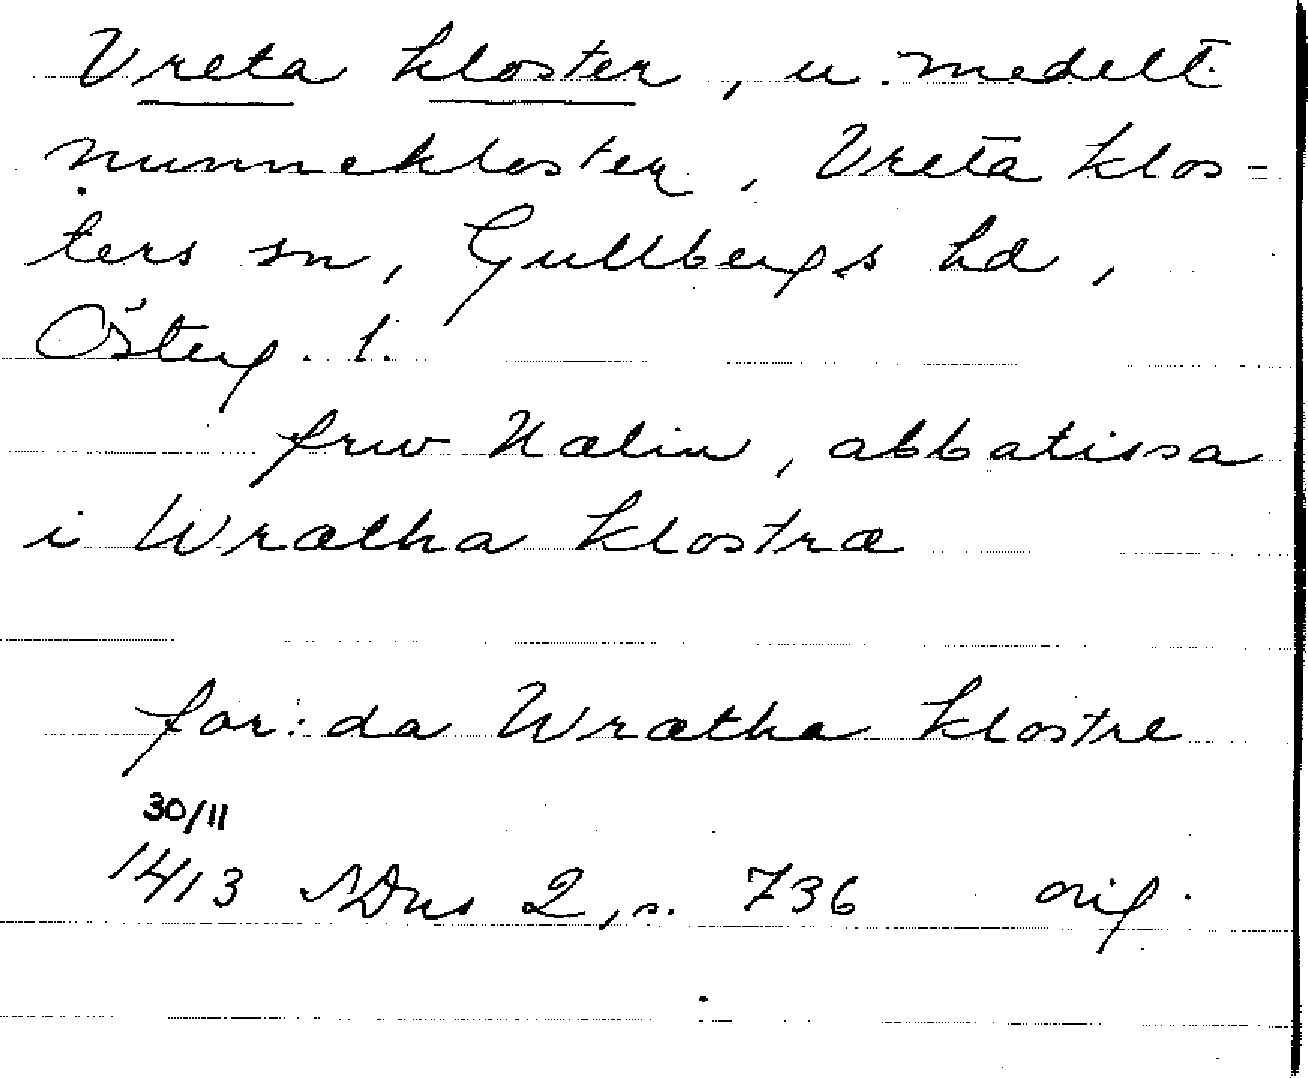 Vreta kloster, u. medelt.
nunnekloster, Vreta klos-
ters sn, Gullbergs hd,
Österg. l.
frw Nælin, abbatissa
i Wrætha klostræ
for:da Wrætha klostre
30/11
1413 SDns 2, s. 736 orig.